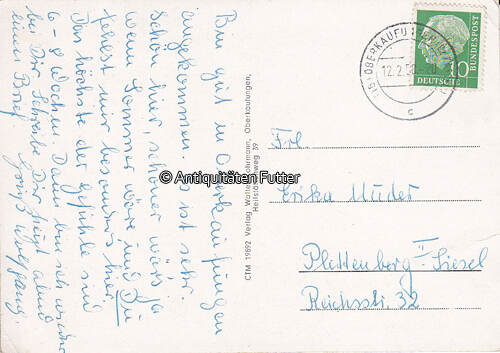 Bin gut in Oberkaufungen
angekommen. Es ist sehr
schön hier, schöner wär's ja
wenn Sommer wäre und Du
fehlst mir besonders hier.
Das höchste der Gefühle sind
6-8 Wochen. Dann bin ich wieder
bei Dir. Schreibe Dir heut abend
einen Brief. Gruß Wolfgang.
CTM 19892 Verlag Walter Lohrmann, Oberkaufungen,
Heilstättenweg 39
© Antiquitäten Futter
OBERKAUFU
12.2.
c
10
DEUTSCHE
BUNDESPOST
Frl.
Erika Müder
Plettenberg-II
Reichsstr. 32